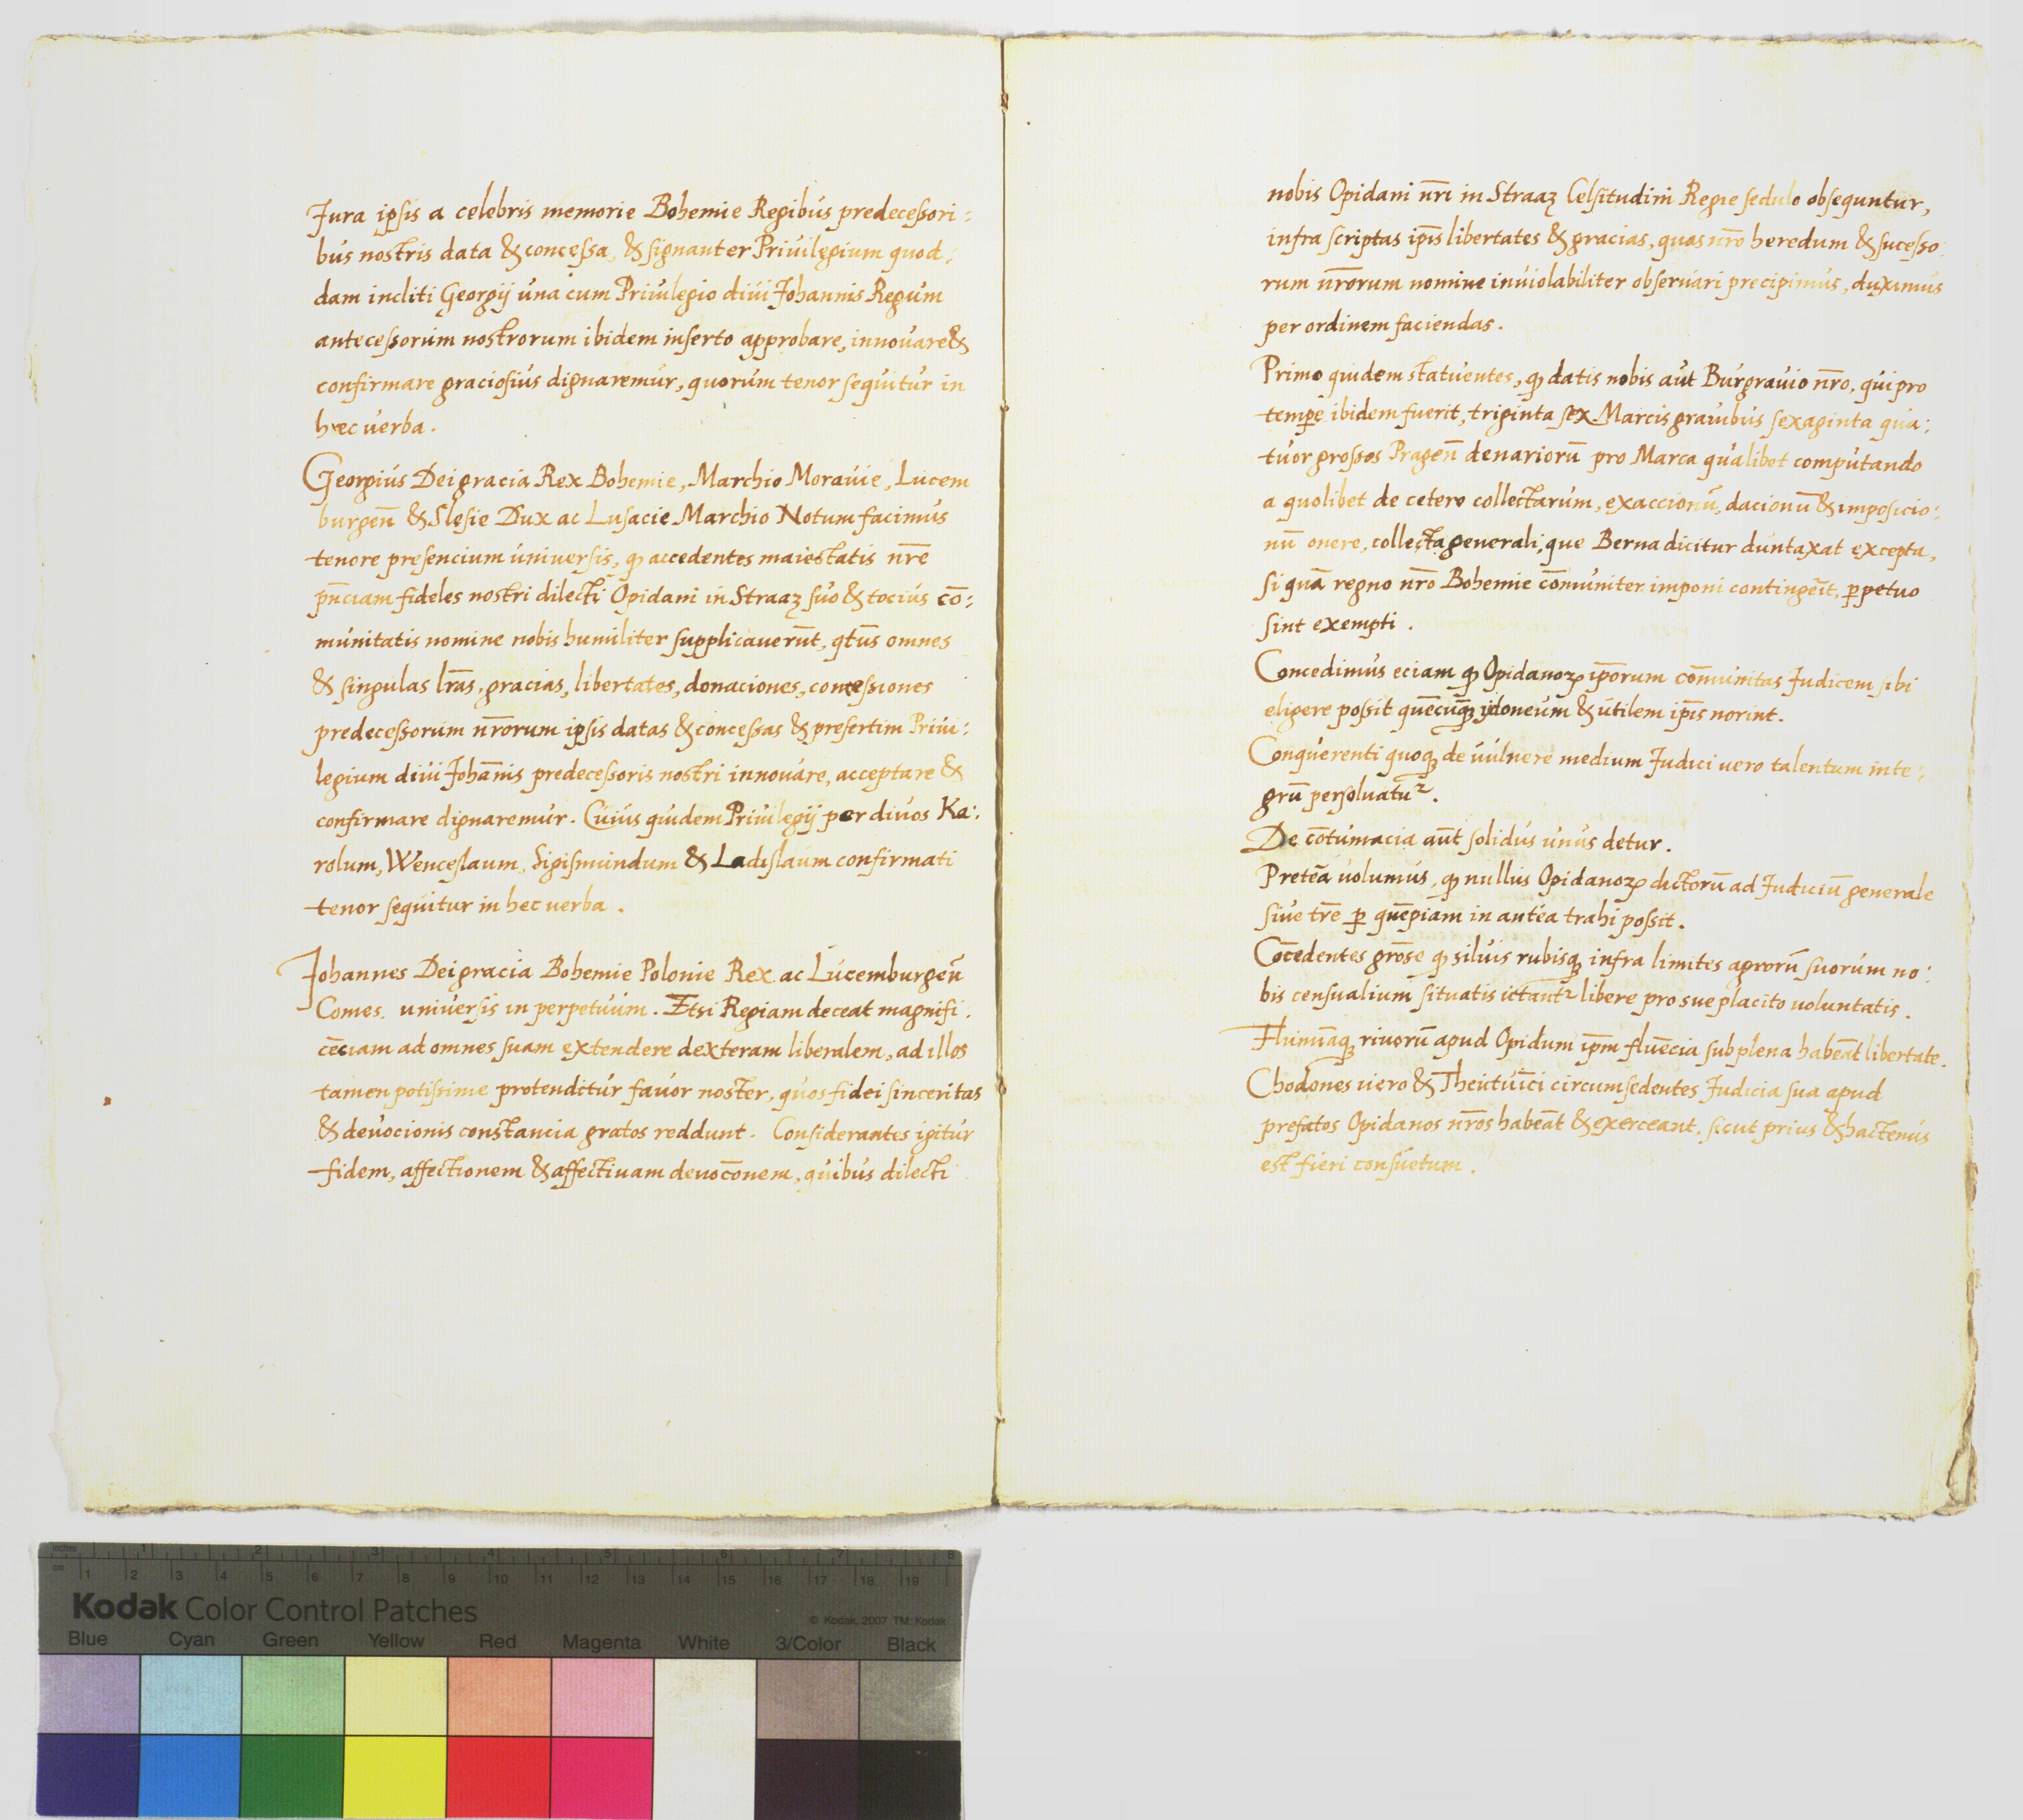 Jura ipsis a celebris memorie Bohemie Regibus predecessori:
bus nostris data & concessa, & signanter Priuilegium quod:
dam incliti Georgij una cum Priuilegio diui Johannis Regum
antecessorum nostrorum ibidem inserto approbare, innouare &
confirmare graciosius dignaremur, quorum tenor sequitur in
hec uerba.
Georgius Dei gracia Rex Bohemie, Marchio Morauie, Lucem
burgen̄ & Slesie Dux ac Lusacie Marchio Notum facimus
tenore presencium uniuersis, ꝙ accedentes maiestatis nr̄e
pn̄ciam fideles nostri dilecti Opidani in Straaz suo & tocius cō:
munitatis nomine nobis humiliter supplicauerūt, qtūs omnes
& singulas lr̄as, gracias, libertates, donaciones, concessiones
predecessorum nr̄orum ipsis datas & concessas & presertim Priui:
legium diui Johān̄is predecessoris nostri innouare, acceptare &
confirmare dignaremur. Cuius quidem Priuilegij per diuos Ka:
rolum, Wenceslaum, Sigismundum & Ladislaum confirmati
tenor sequitur in hec uerba.
Johannes Dei gracia Bohemie Polonie Rex ac Lucemburgen̄
Comes. uniuersis in perpetuum. Etsi Regiam deceat magnifi.
cēciam ad omnes suam extendere dexteram liberalem, ad illos
tamen potissime protenditur fauor noster, quos fidei sinceritas
& deuocionis constancia gratos reddunt. Considerantes igitur
fidem, affectionem & affectiuam deuocōnem, quibus dilecti
nobis Opidani nr̄i in Straaz Celsitudini Regie sedulo obseguntur,
infra scriptas ip̄is libertates & gracias, quas nr̄o heredum & sucesso:
rum nr̄orum nomine inuiolabiliter obseruari precipimus, duximus
per ordinem faciendas.
Primo quidem statuentes, ꝙ datis nobis aut Burgrauio nr̄o, qui pro
tempē ibidem fuerit, triginta sex Marcis grauibus sexaginta qua:
tuor grossos Pragen̄ denariorū pro Marca qualibet computando
a quolibet de cetero collectarum, exaccionū, dacionū & imposicio:
nū onere, collecta generali, que Berna dicitur duntaxat excepta,
si quā regno nr̄o Bohemie cōmuniter imponi contingēit, ꝑpetuo
sint exempti.
Concedimus eciam ꝙ Opidanoꝝ ip̄orum cōmunitas Judicem sibi
eligere possit quēcūqꝫ ydoneum & utilem ip̄is norint.
Conquerenti quoqꝫ de uulnere medium Judici uero talentum inte:
grū persoluatur.
De cōtumacia aūt solidus unus detur.
Pretēa uolumus, ꝙ nullus Opidanoꝝ dictorū ad Judiciū generale
siue tr̄e ꝑ quēpiam in antea trahi possit.
Cōcēdentes grōse ꝙ siluis rubisqꝫ infra limites agrorū suorum no:
bis censualium situatis utantur libere pro sue placito uoluntatis.
Fluminūqꝫ riuorū apud Opidum ip̄m fluēcia sub plena habeāt libertate.
Chodones uero & Theutuīci circumsedentes Judicia sua apud
prefatos Opidanos nr̄os habeāt & exerceant, sicut prius & hactenus
est fieri consuetum.
Kodak Color Control Patches
© Kodak, 2007 TM: Kodak
Blue Cyan Green Yellow Red Magenta White 3/Color Black